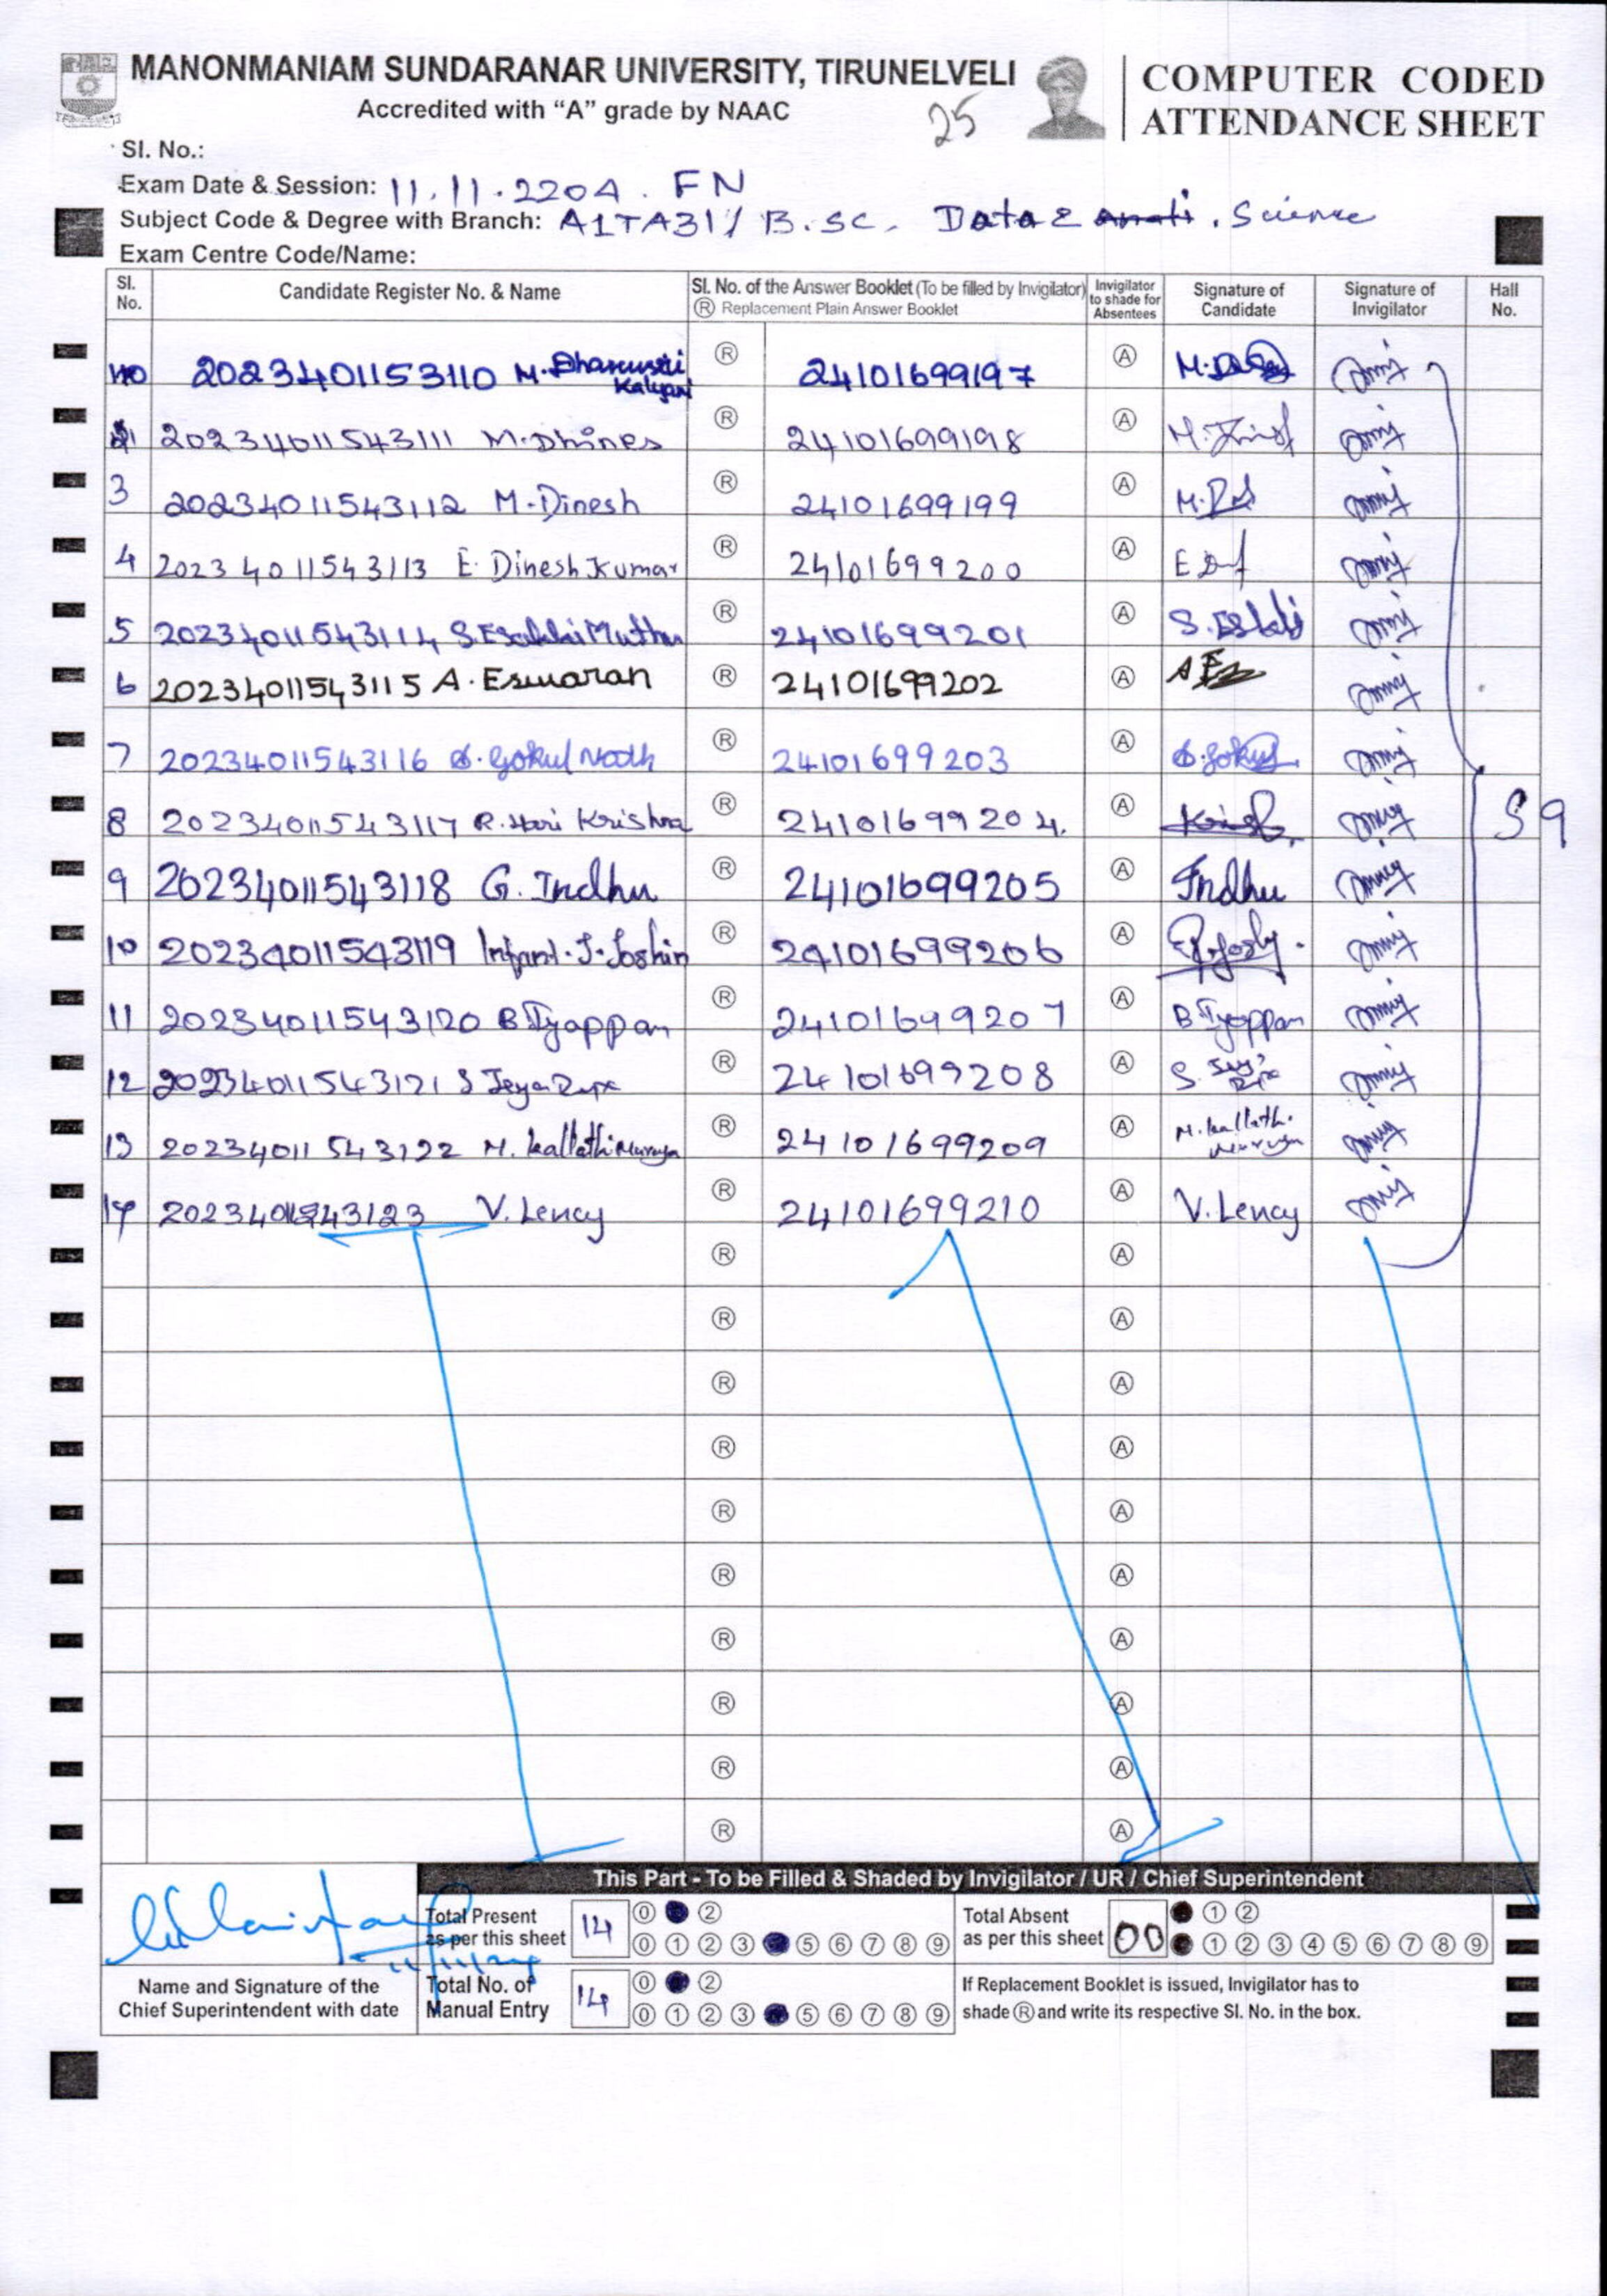 MANONMANIAM SUNDARANAR UNIVERSITY, TIRUNELVELI
Accredited with “A” grade by NAAC
25
COMPUTER CODED
ATTENDANCE SHEET
Sl. No.:
Exam Date & Session: 11.11.2204. FN
Subject Code & Degree with Branch: A1TA31/ B.SC. Data Science
Exam Centre Code/Name:
Sl. No. Candidate Register No. & Name Sl. No. of the Answer Booklet (To be filled by Invigilator) Ⓡ Replacement Plain Answer Booklet Invigilator to shade for Absentees Signature of Candidate Signature of Invigilator Hall No.
2023401153110 M. Kalyani Ⓡ 24101699197 Ⓐ
20234011543111 M. Dhines Ⓡ 24101699198 Ⓐ
3 20234011543112 M. Dinesh Ⓡ 24101699199 Ⓐ
4 20234011543113 E. Dinesh Kumar Ⓡ 24101699200 Ⓐ
5 20234011543114 S. Esakkai Muthu Ⓡ 24101699201 Ⓐ
6 20234011543115 A. Eswaran Ⓡ 24101699202 Ⓐ
7 20234011543116 Gokul Nath Ⓡ 24101699203 Ⓐ
8 20234011543117 R. Hari Krishna Ⓡ 24101699204. Ⓐ S9
9 20234011543118 G. Indhu Ⓡ 24101699205 Ⓐ Indhu
10 20234011543119 Infant. J. Joshin Ⓡ 24101699206 Ⓐ
11 20234011543120 B Iyappan Ⓡ 24101699207 Ⓐ B Iyappan
12 20234011543121 S Ⓡ 24101699208 Ⓐ
13 20234011543122 M. Kallathi Muruga Ⓡ 24101699209 Ⓐ M. Kallathi Muruga
14 V. Lency Ⓡ 24101699210 Ⓐ V. Lency
Ⓡ Ⓐ
Ⓡ Ⓐ
Ⓡ Ⓐ
Ⓡ Ⓐ
Ⓡ Ⓐ
Ⓡ Ⓐ
Ⓡ Ⓐ
Ⓡ Ⓐ
Ⓡ Ⓐ
Ⓡ Ⓐ
This Part - To be Filled & Shaded by Invigilator / UR / Chief Superintendent
Total Present as per this sheet 14 0 2
0 1 2 3 5 6 7 8 9
Total Absent as per this sheet 00 1 2
1 2 3 4 5 6 7 8 9
11/11/24
Name and Signature of the Chief Superintendent with date
Total No. of Manual Entry 14 0 2
0 1 2 3 5 6 7 8 9
If Replacement Booklet is issued, Invigilator has to
shade Ⓡ and write its respective Sl. No. in the box.